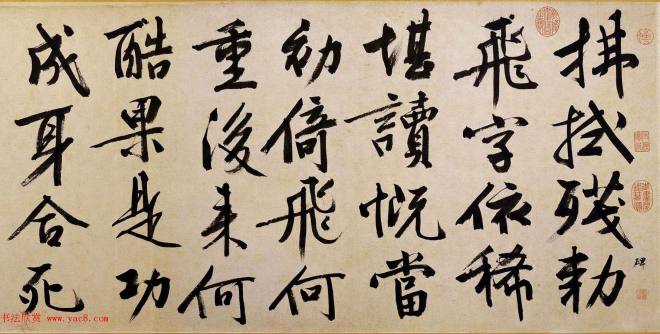 拂拭殘勅
碑
飛字依稀
堪讀慨當
初倚飛何
重後来何
酷果是功
成身合死
书法欣赏 www.yac8.com